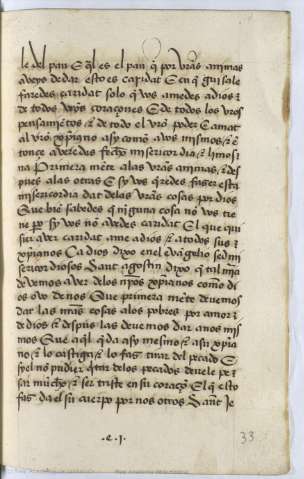 le del pan E q̃l es el pan q̃ por vr̃as animas
aveys de dar esto es caridat E en q̃ guisa le
faredes caridat solo q̃ vos amedes a dios ⁊
de todos vr̃os coraçones E de todos los vr̃os
pensamẽtos ⁊ de todo el vr̃o poder E amat
al vr̃o xp̃iano asy comõ a vos mismos ⁊ ẽ
tonçe averedes fecho misericordia ⁊ lymosi
na Primera mẽte a las vr̃as animas ⁊ des
pues a las otras E sy vos q̃redes faser esta
misericordia dat de las vr̃as cosas por dios
Que biẽ sabedes q̃ ninguna cosa nõ vos tie
ne pro sy vos nõ avedes caridat El que qui
sier aver caridat ame a dios ⁊ a todos sus
xp̃ianos Ca dios dixo en el evãgelio sed mi
sericordiosos Sant agostin dixo q̃ tal mĩa
devemos aver de los nr̃os xp̃ianos comõ di
os ovo de nos Que primera mẽte devemos
dar las nr̃as cosas a los pobres por amor
de dios ⁊ despues las devemos dar a nos mis
mos Que aq̃l q̃ da a sy mesmo ⁊ a su xp̃ia
no ⁊ lo castiga ⁊ lo fas tirar del pecado E
sy el nõ pudier q̃tar de los pecados deve le pe
sar mucho ⁊ ser triste en su coraçõ El q̃ esto
fas da el su cuerpo por nos otros Sant Je
.e.j.
33